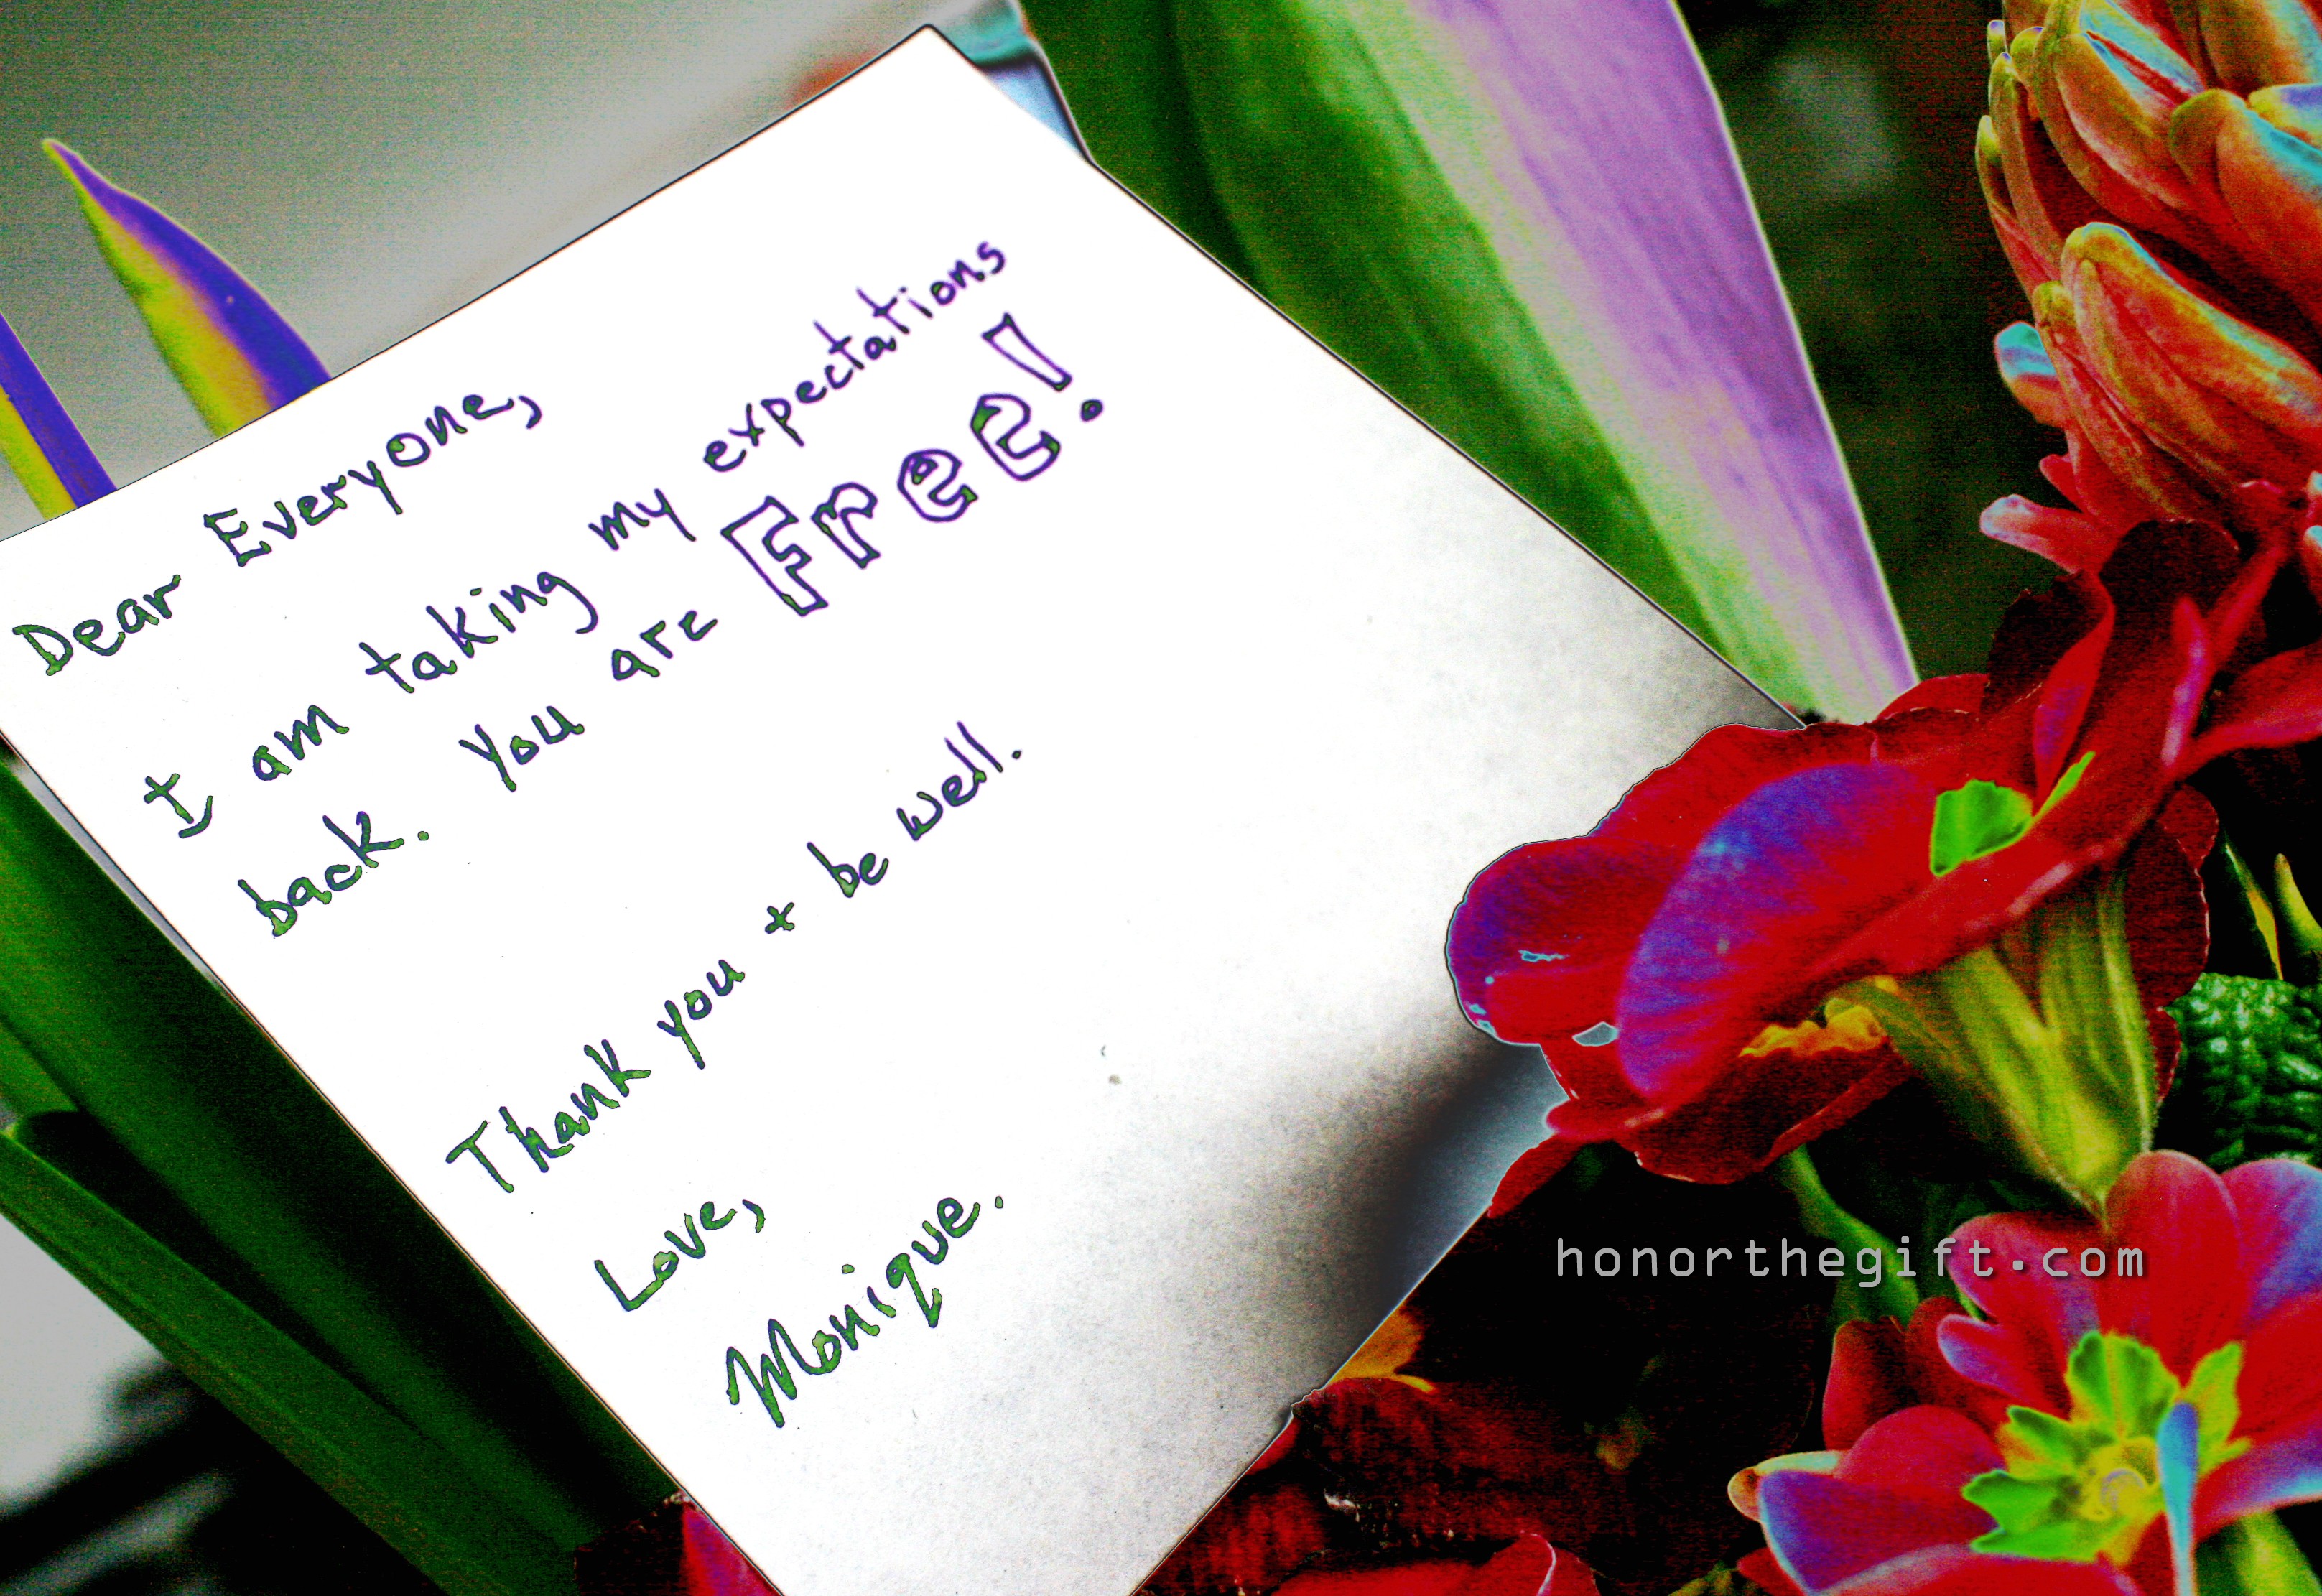 Dear Everyone,
I am taking my expectations
back. You are Free!
Thank you + be well.
Love,
Monique.
honorthegift.com